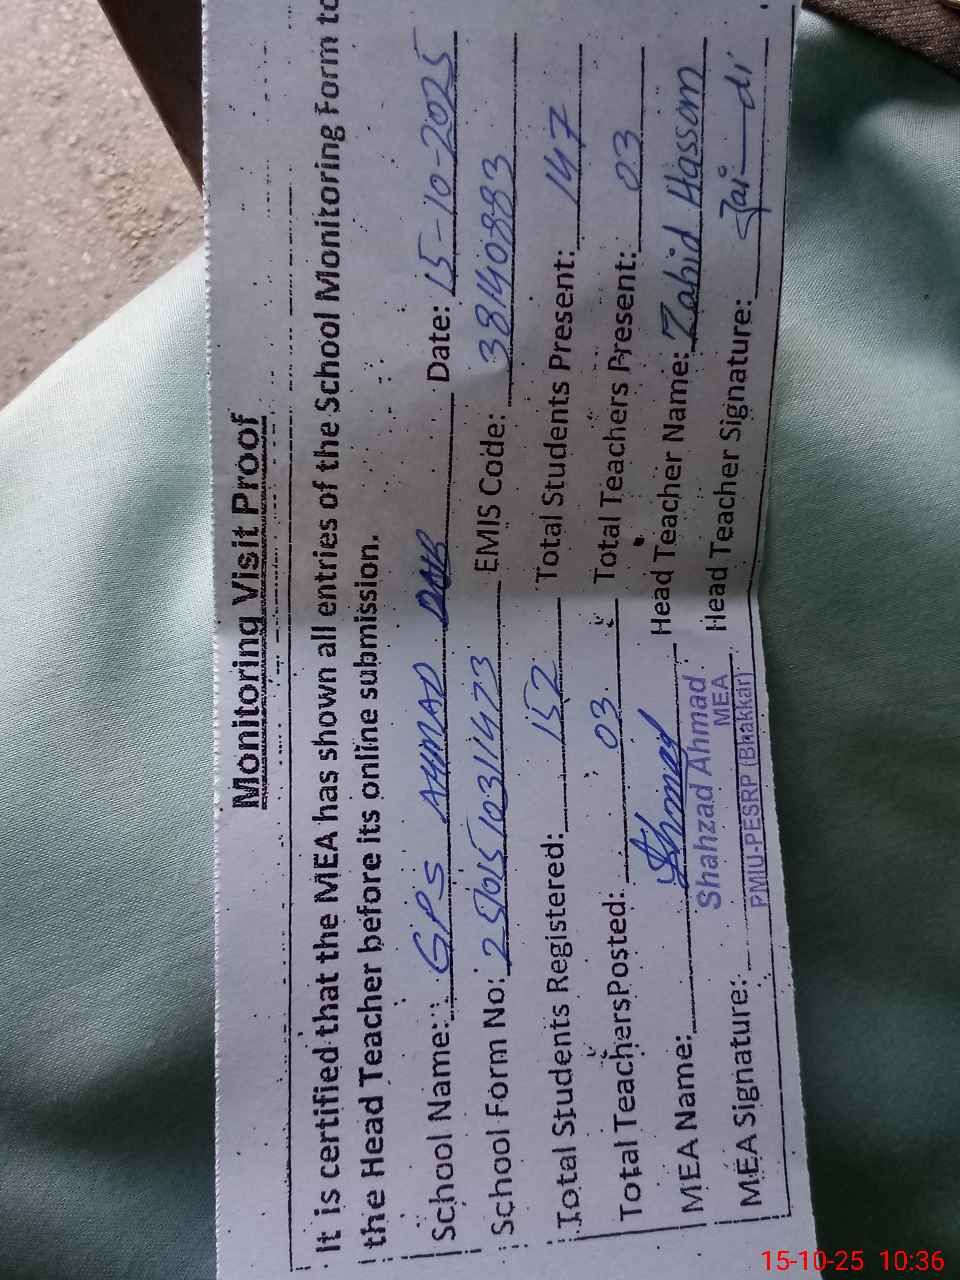 Monitoring Visit Proof
It is certified that the MEA has shown all entries of the School Monitoring Form to
the Head Teacher before its online submission.
School Name: GPS AHMAD DAHR Date: 15-10-2025
School Form No: 25101510311473 EMIS Code: 38140883
Total Students Registered: 152 Total Students Present: 147
Total TeachersPosted: 03 Total Teachers Present: 03
MEA Name: Ahmad Head Teacher Name: Zahid Hassom
Shahzad Ahmad
MEA
MEA Signature: PMIU-PESRP (Bhakkar) Head Teacher Signature:
15-10-25 10:36